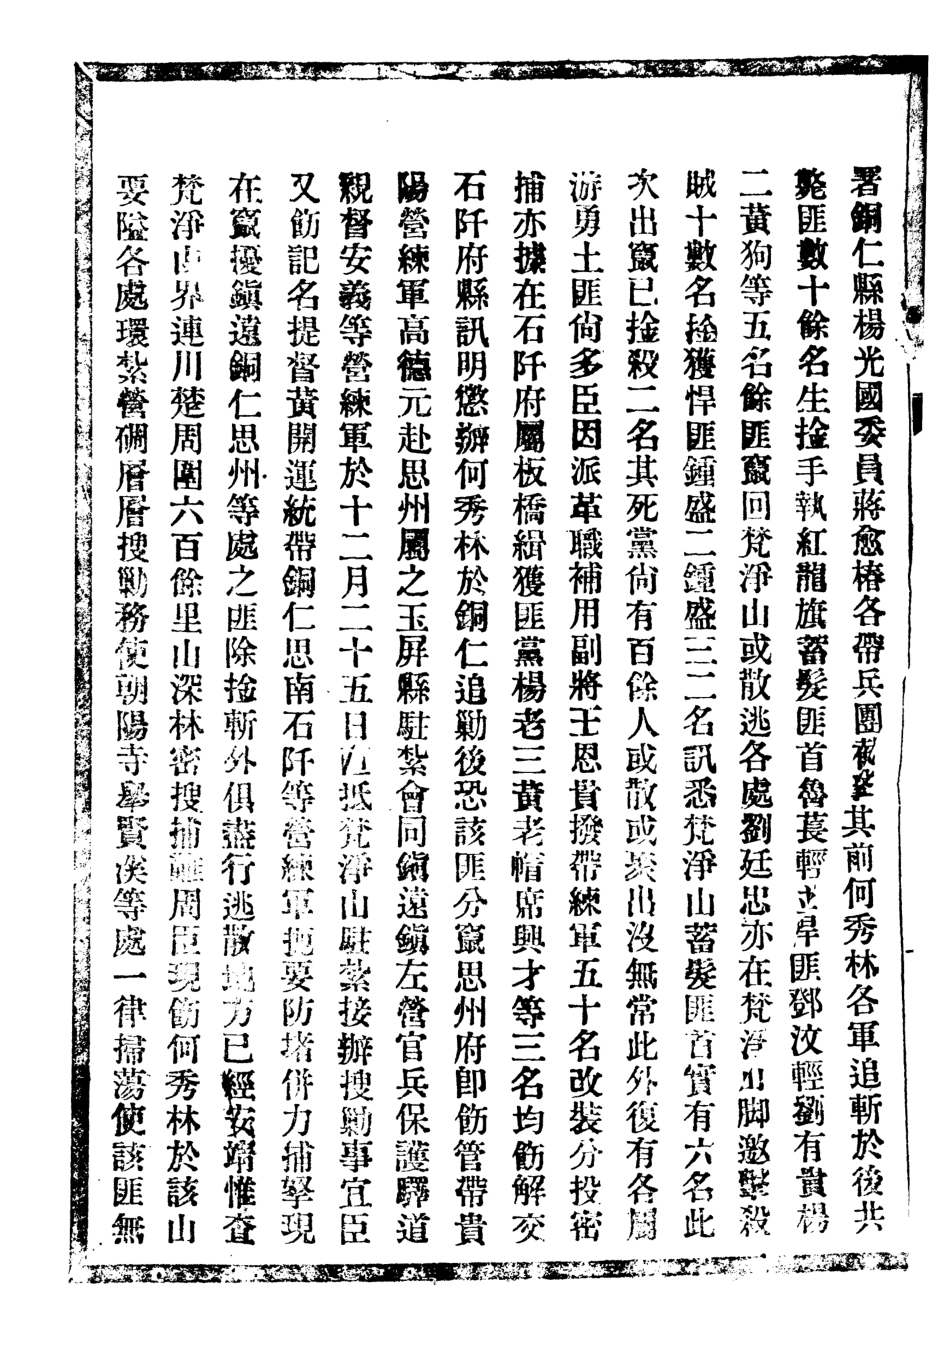 署銅仁縣楊光國委員蔣愈椿各帶兵團截其前何秀林各軍追斬於後共
斃匪數十餘名生捡手執紅龍旗蓄髮匪首魯萇輕立旱匪鄧汶輕劉有貴楊
二黃狗等五名餘匪竄回梵淨山或散逃各處劉廷忠亦在梵淨山脚邀擊殺
賊十數名捡獲悍匪鍾盛二鍾盛三二名訊悉梵淨山蓄髮匪首實有六名此
次出竄已捡殺二名其死黨尙有百餘人或散或聚出沒無常此外復有各屬
游勇土匪尙多臣因派革職補用副將王恩貴撥帶練軍五十名改裝分投密
捕亦據在石阡府屬板橋緝獲匪黨楊老三黃老帽席興才等三名均飭解交
石阡府縣訊明懲辦何秀林於銅仁追勦後恐該匪分竄思州府卽飭管帶貴
陽營練軍高德元赴思州屬之玉屏縣駐紮會同鎭遠鎭左營官兵保護驛道
親督安義等營練軍於十二月二十五日直抵梵淨山駐紮接辦搜勦事宜臣
又飭記名提督黃開運統帶銅仁思南石阡等營練軍扼要防堵併力捕拏現
在竄擾鎭遠銅仁思州等處之匪除捡斬外俱盡行逃散地方已經安靖惟查
梵淨山界連川楚周圍六百餘里山深林密搜捕難周臣現飭何秀林於該山
要隘各處環紮營碉層層搜勦務使朝陽寺舉賢溪等處一律掃蕩使該匪無